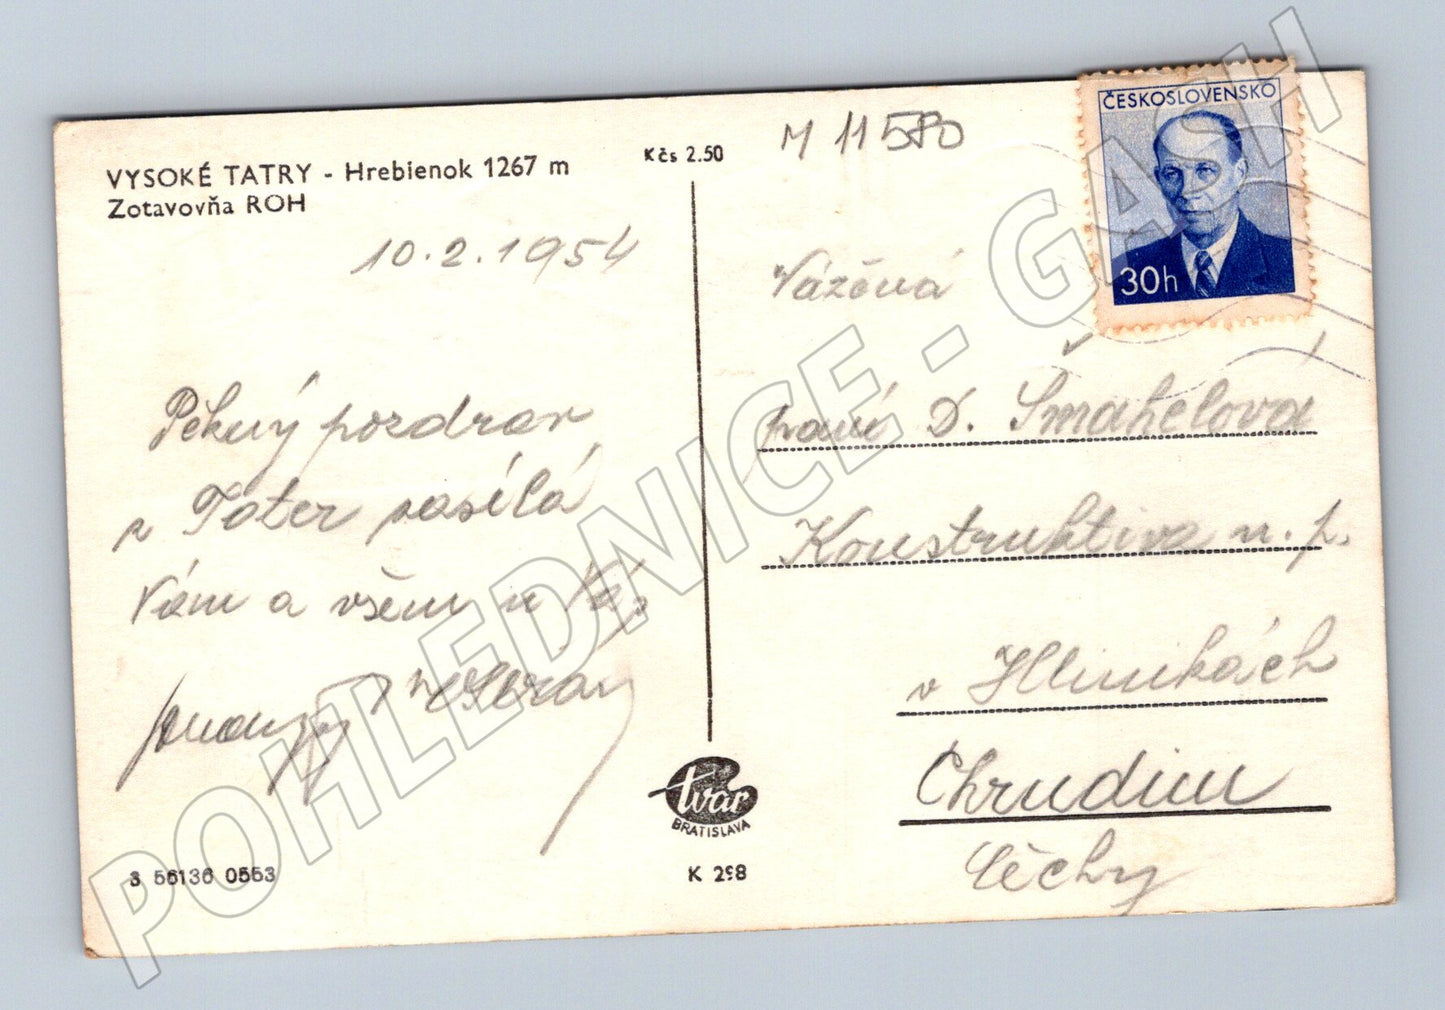 VYSOKÉ TATRY - Hrebienok 1267 m
Zotavovňa ROH
Kčs 2.50
M 11580
ČESKOSLOVENSKO
30h
10.2.1954
Pěkný pozdrav
z Tater zasílá
Vám a všem u
Vážená
paní D. Šmahelová
Konstruktiva n. p.
v Hlinikách
Chrudim
Čechy
tvar
BRATISLAVA
K 298
3 56136 0553
POHLEDNICE - GASH